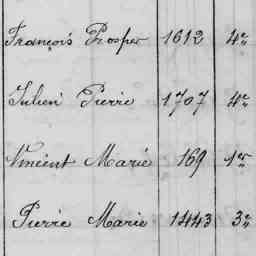 François Prosper 1612 4e
Julien Pierre 1707 4e
Vincent Marie 169 1er
Pierre Marie 1443 3e